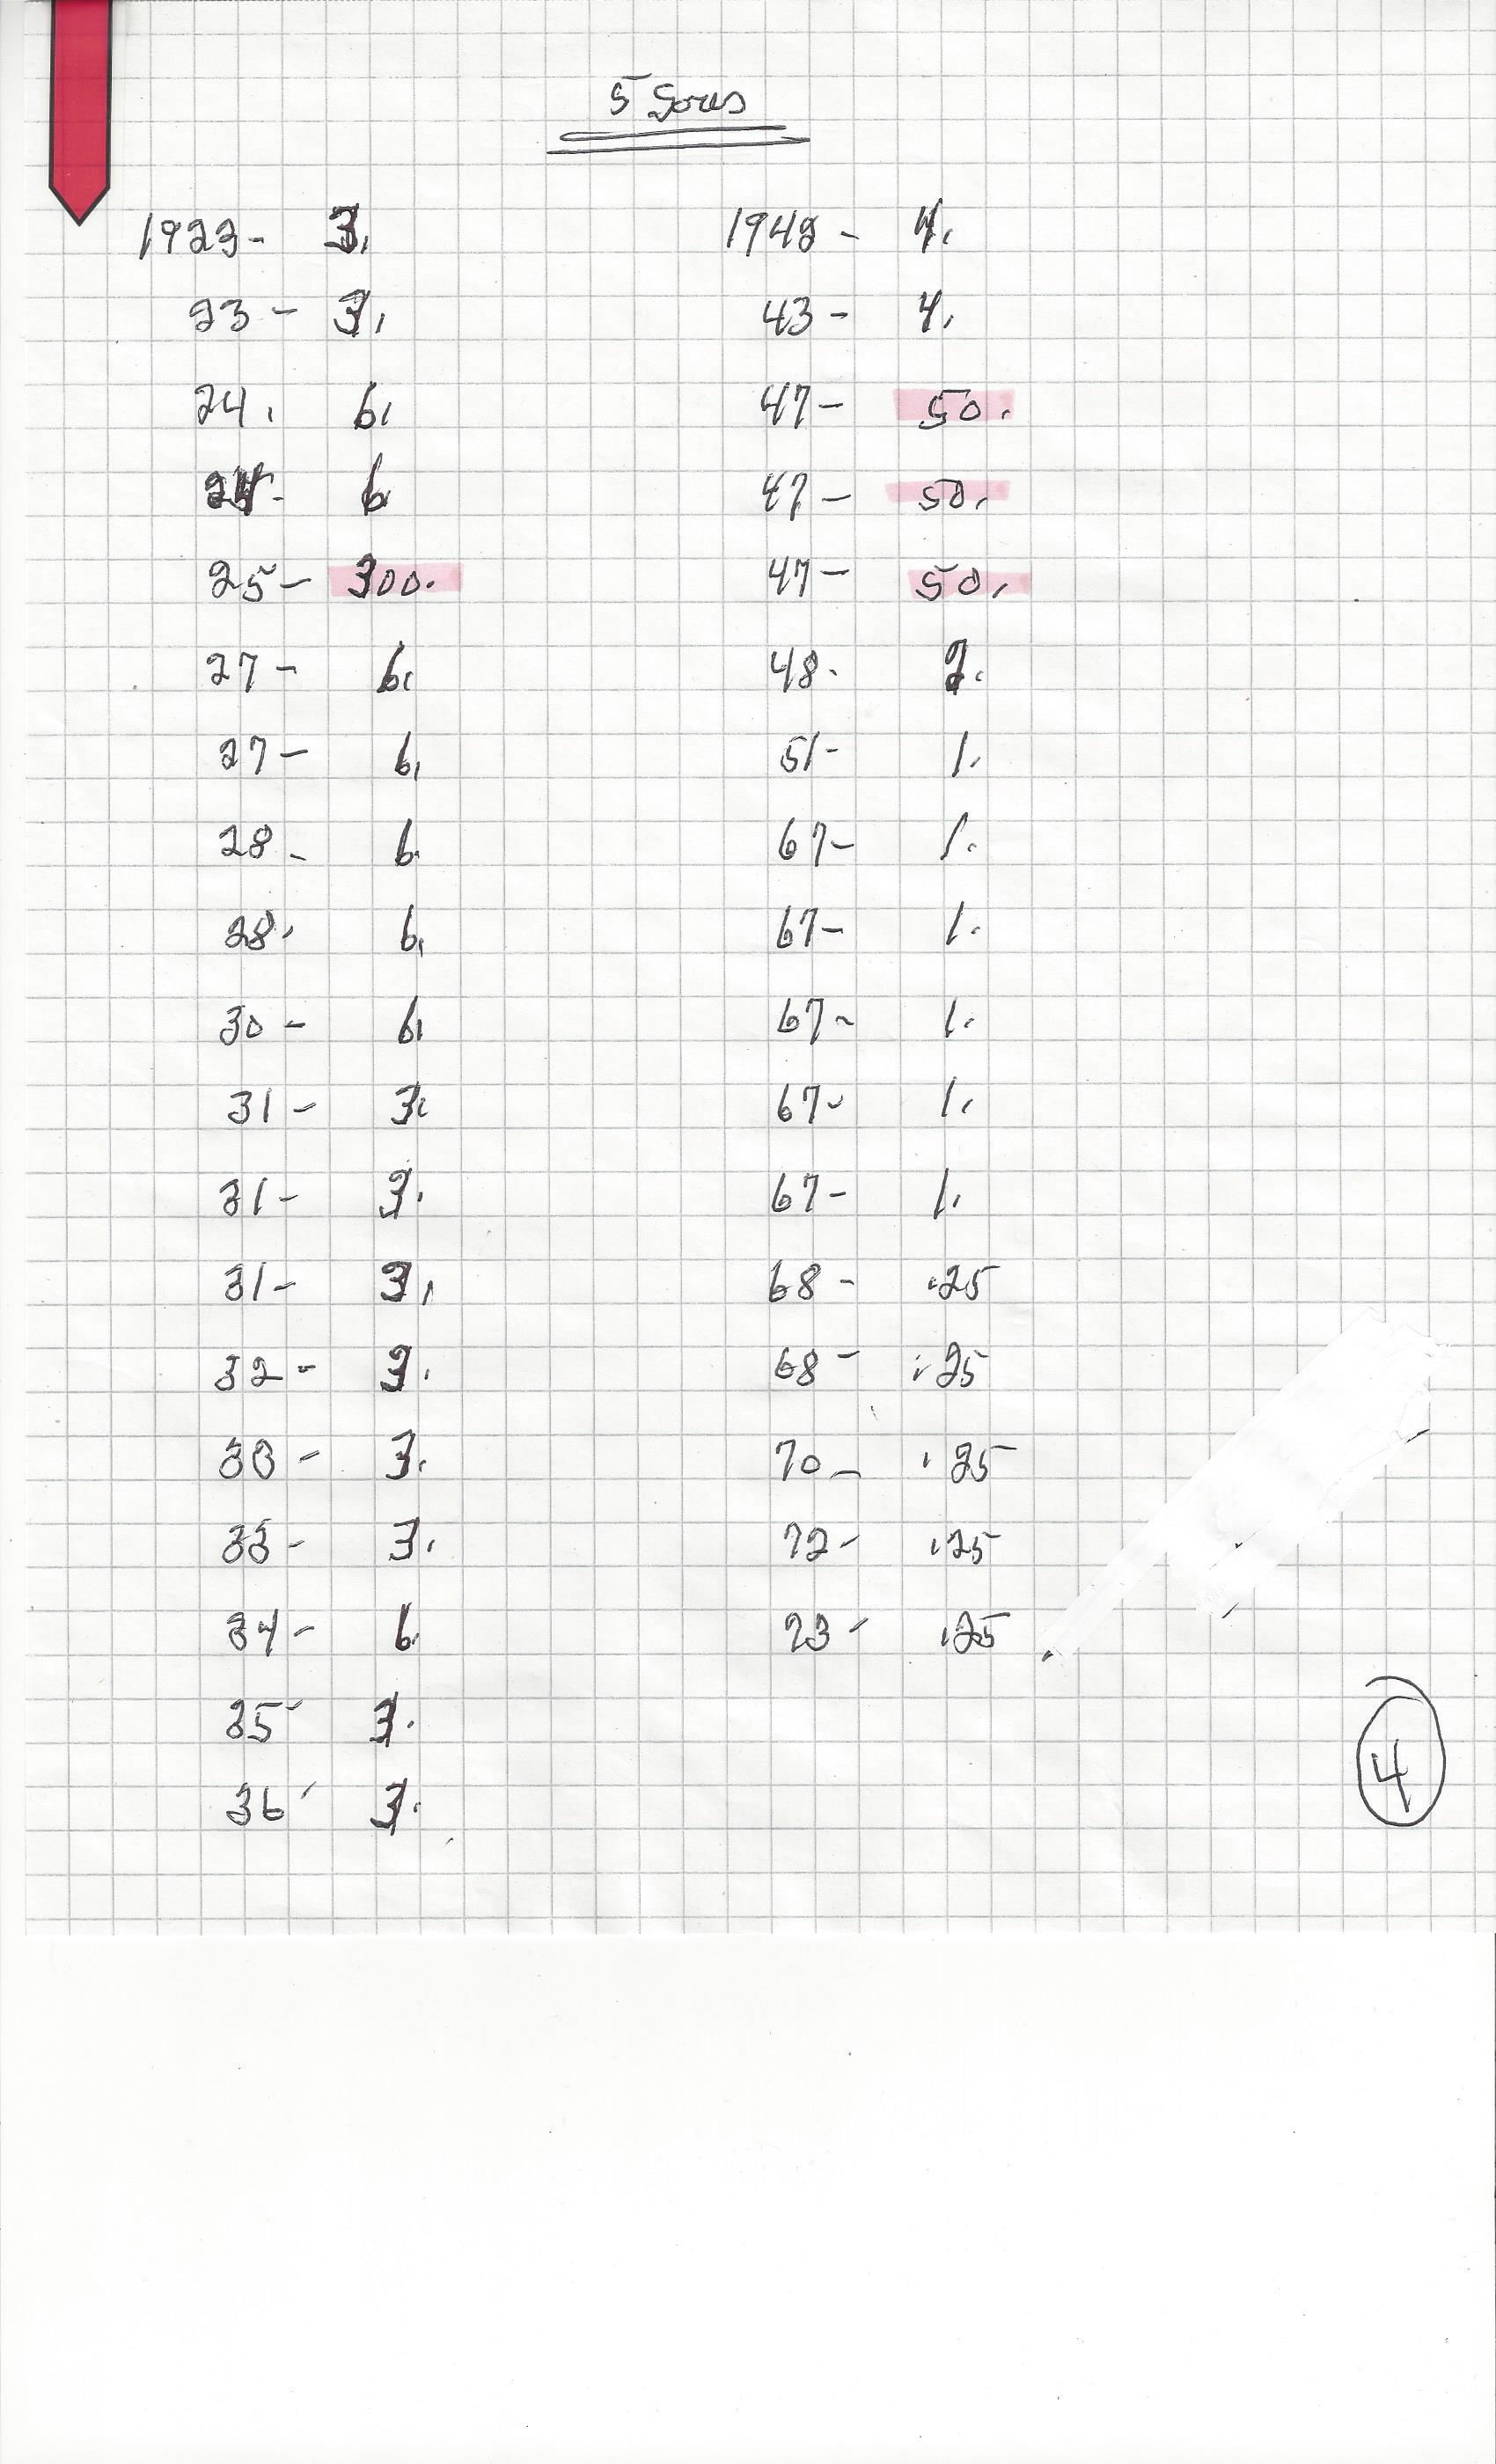 5 Sous
1923- 3.
23- 3.
24. 6.
24- 6
25- 300.
27- 6.
27- 6.
28- 6.
28. 6.
30- 6.
31- 3.
31- 3.
31- 3.
32- 3.
33- 3.
33- 3.
34- 6.
35- 3.
36- 3.
1942- 4.
43- 4.
47- 50.
47- 50.
47- 50.
48. 2.
51- 1.
67- 1.
67- 1.
67- 1.
67- 1.
67- 1.
68- .25
68- .25
70- .25
72- .25
73- .25
4